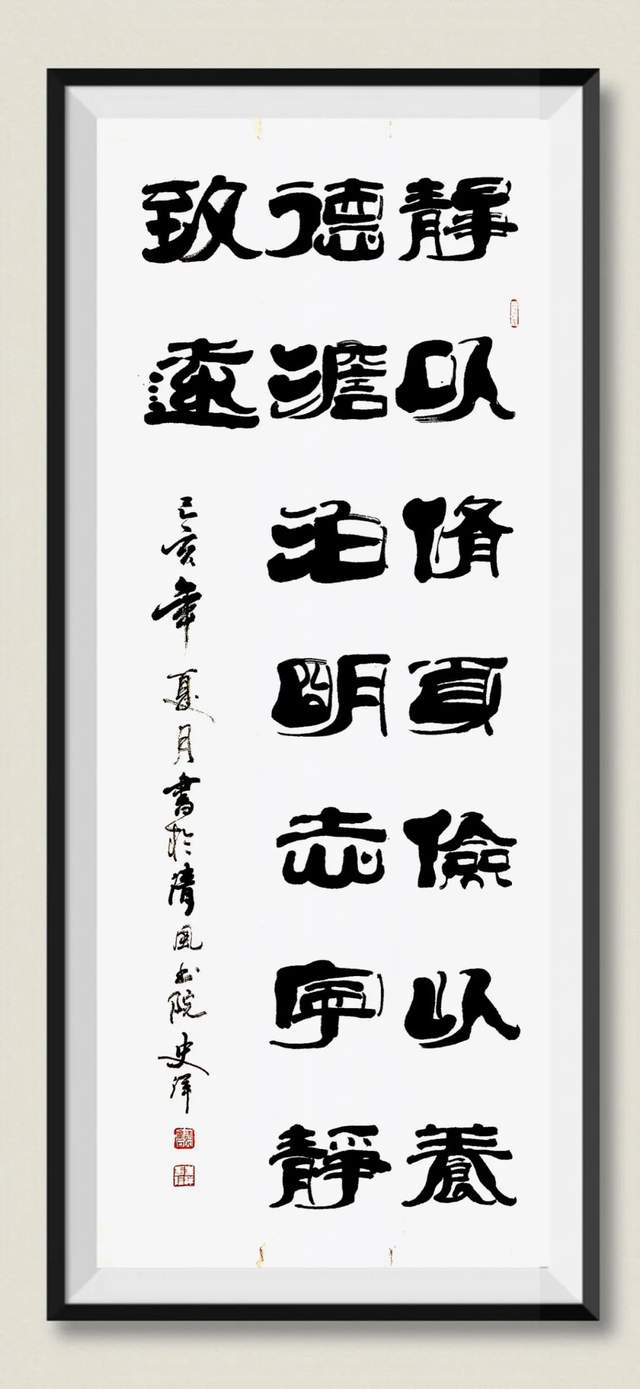 靜以脩身儉以養
德澹泊明志寧靜
致遠
己亥年夏月書於清風书院史